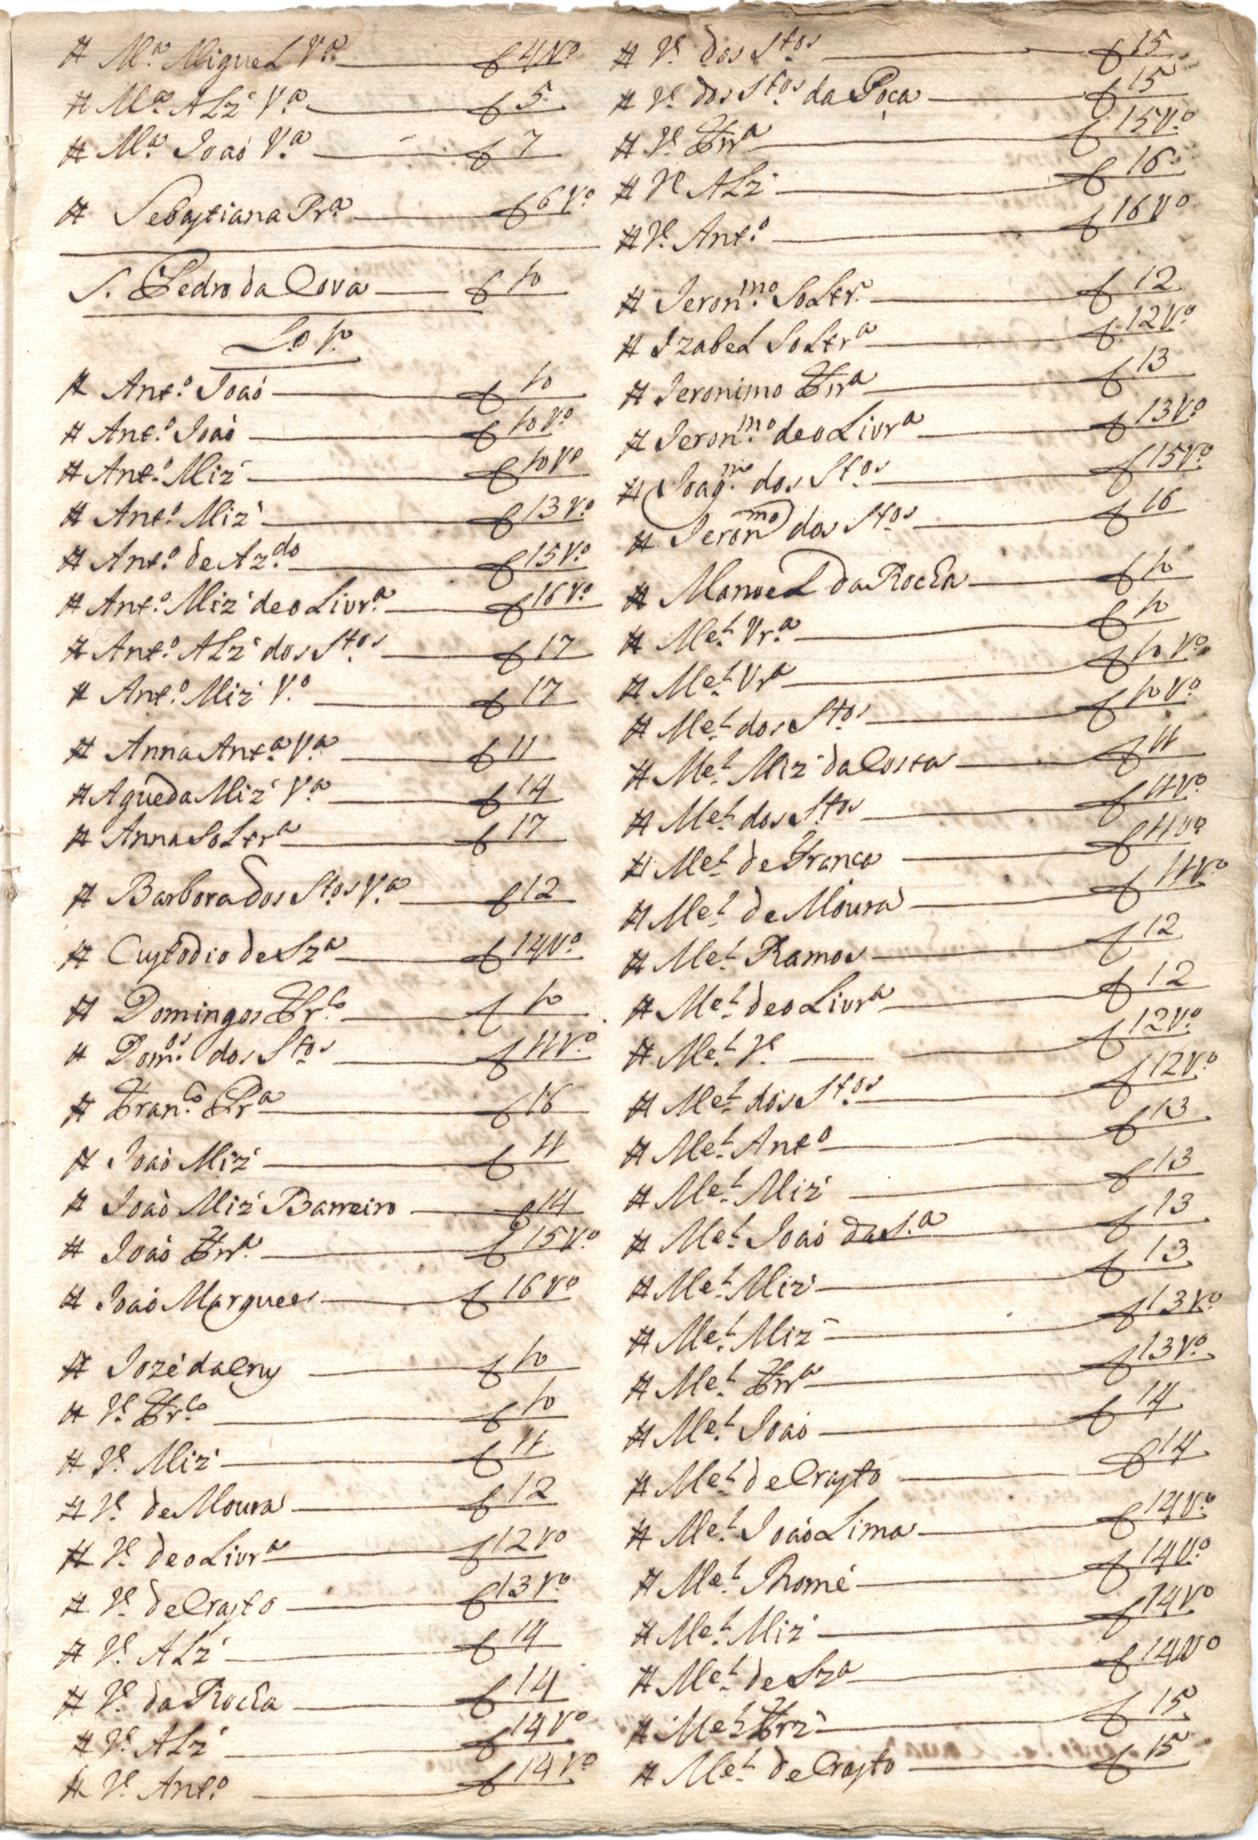 # Ma. Miguel Va. f 4 Vo
# Ma. ALz' Va. f 5
# Ma. Joaó Va. f 7
# Sebastiana Pra. f 6 Vo.
S. Pedro da Cova f 10
Lo Vo.
# Anto. Joaó f 10
# Anto. Joaó f 10 Vo.
# Anto. Miz' f 10 Vo
# Anto. Miz' f 13 Vo.
# Anto. de Azdo. f 15 Vo.
# Anto. Miz' de oLivra. f 16 Vo.
# Anto. ALz' dos Stos. f 17
# Anto. Miz' Vo. f 17
# Anna Anta. Va. f 11
# Agueda Miz' Va. f 14
# Anna SoLtra. f 17
# Barbora dos Stos. Va. f 12
# Custodio de Sza. f 14 Vo.
# Domingos Frco. f 10
# Domos. dos Stos. f 11 Vo.
# Franco. Pra. f 16
# Joaó Miz' f 11
# Joaó Miz' Barreiro f 14
# Joaó Frra. f 15 Vo
# Joaó Marques f 16 Vo
# Jozé da Cruz f 10
# Je. Frco. f 10
# Je. Miz' f 11
# Je. de Moura f 12
# Je. de oLivra. f 12 Vo
# Je. de Crasto f 13 Vo.
# Je. ALz' f 14
# Je. da Rocha f 14
# Je. ALz' f 14 Vo
# Je. Anto. f 14 Vo.
# Je. dos Stos f 15
# Je. dos Stos. da Poça f 15
# Je. Frra. f 15 Vo.
# Je. ALz' f 16
# Je. Anto. f 16 Vo
# Jeronmo. SoLtr. f 12
# Izabel SoLtra. f 12 Vo.
# Jeronimo Frra. f 13
# Jeronmo. de oLivra f 13 Vo
# Joaqm. dos Stos. f 15 Vo.
# Jeronmo. dos Stos. f 16
# ManoeL da Rocha f 10
# Mel. Vra. f 10
# Mel. Vra. f 10 Vo.
# Mel. dos Stos. f 10 Vo
# Mel. Miz' da Costa f 11
# Mel. dos Stos f 11 Vo.
# Mel. de Franca f 11 Vo
# Mel. de Moura f 11 Vo
# Mel. Ramos f 12
# Mel. de oLivra f 12
# Mel. Je. f 12 Vo.
# Mel. dos Stos. f 12 Vo
# Mel. Anto. f 13
# Mel. Miz' f 13
# Mel. Joaó da Sa. f 13
# Mel. Miz' f 13
# Mel. Miz' f 13 Vo
# Mel. Frra. f 13 Vo.
# Mel. Joaó f 14
# Mel. de Crasto f 14
# Mel. Joaó Lima f 14 Vo.
# Mel. Thomé f 14 Vo.
# Mel. Miz' f 14 Vo
# Mel. de Sza f 14 Vo
# Mel. Frz' f 15
# Mel. de Crasto f 15